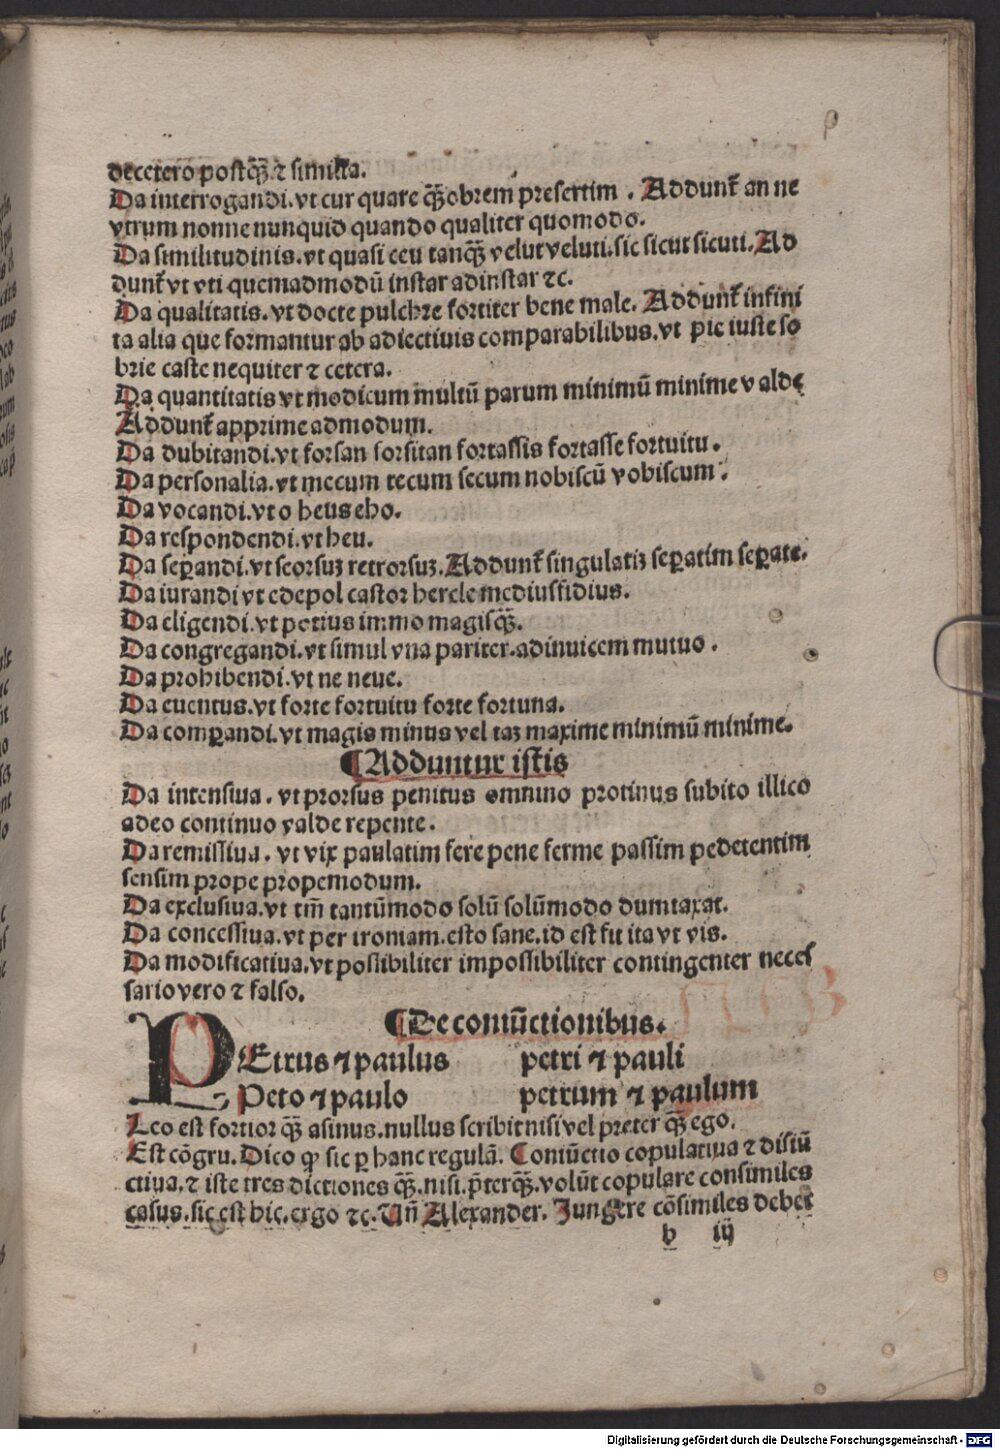 decetero postq̄ꝫ ⁊ similia.
Da interrogandi. vt cur quare q̄ꝫobrem presertim. Addunt᷑ an ne
vtrum nonne nunquid quando qualiter quomodo.
Da similitudinis. vt quasi ceu tanq̄ꝫ velut veluti. sic sicut sicuti. Ad
dunt᷑ vt vti quemadmodū instar adinstar ⁊c.
Da qualitatis. vt docte pulchre fortiter bene male. Addunt᷑ infini
ta alia que formantur ab adiectiuis comparabilibus. vt pie iuste so
brie caste nequiter ⁊ cetera.
Da quantitatis vt modicum multū parum minimū minime valde
Addunt᷑ apprime admodum.
Da dubitandi. vt forsan forsitan fortassis fortasse fortuitu.
Da personalia. vt mecum tecum secum nobiscū vobiscum.
Da vocandi. vt o heus eho.
Da respondendi. vt heu.
Da seꝑandi. vt seorsuꝫ retrorsuꝫ. Addunt᷑ singulatiꝫ seꝑatim seꝑate.
Da iurandi vt edepol castor hercle mediusfidius.
Da eligendi. vt potius immo magisq̄ꝫ.
Da congregandi. vt simul vna pariter. adinuicem mutuo.
Da prohibendi. vt ne neue.
Da euentus. vt forte fortuitu forte fortuna.
Da comꝑandi. vt magis minus vel taꝫ maxime minimū minime.
¶Adduntur istis
Da intensiua. vt prorsus penitus omnino protinus subito illico
adeo continuo valde repente.
Da remissiua. vt vix paulatim fere pene ferme passim pedetentim
sensim prope propemodum.
Da exclusiua. vt tm̄ tantūmodo solū solūmodo dumtaxat.
Da concessiua. vt per ironiam. esto sane. id est fit ita vt vis.
Da modificatiua. vt possibiliter impossibiliter contingenter neces
sario vero ⁊ falso.
¶De coniūctionibus.
PEtrus ⁊ paulus petri ⁊ pauli
Peto ⁊ paulo petrum ⁊ paulum
Leo est fortior q̄ꝫ asinus. nullus scribit nisi vel preter q̄ꝫ ego.
Est cōgru. Dico ꝙ sic ꝑ hanc regulā. Coniūctio copulatiua ⁊ disiū
ctiua. ⁊ iste tres dictiones q̄ꝫ. nisi. p̄terq̄ꝫ. volūt copulare consimiles
casus. sic est hic. ergo ⁊c. Uñ Alexander. Jungere cōsimiles debet
b iij
Digitalisierung gefördert durch die Deutsche Forschungsgemeinschaft - DFG